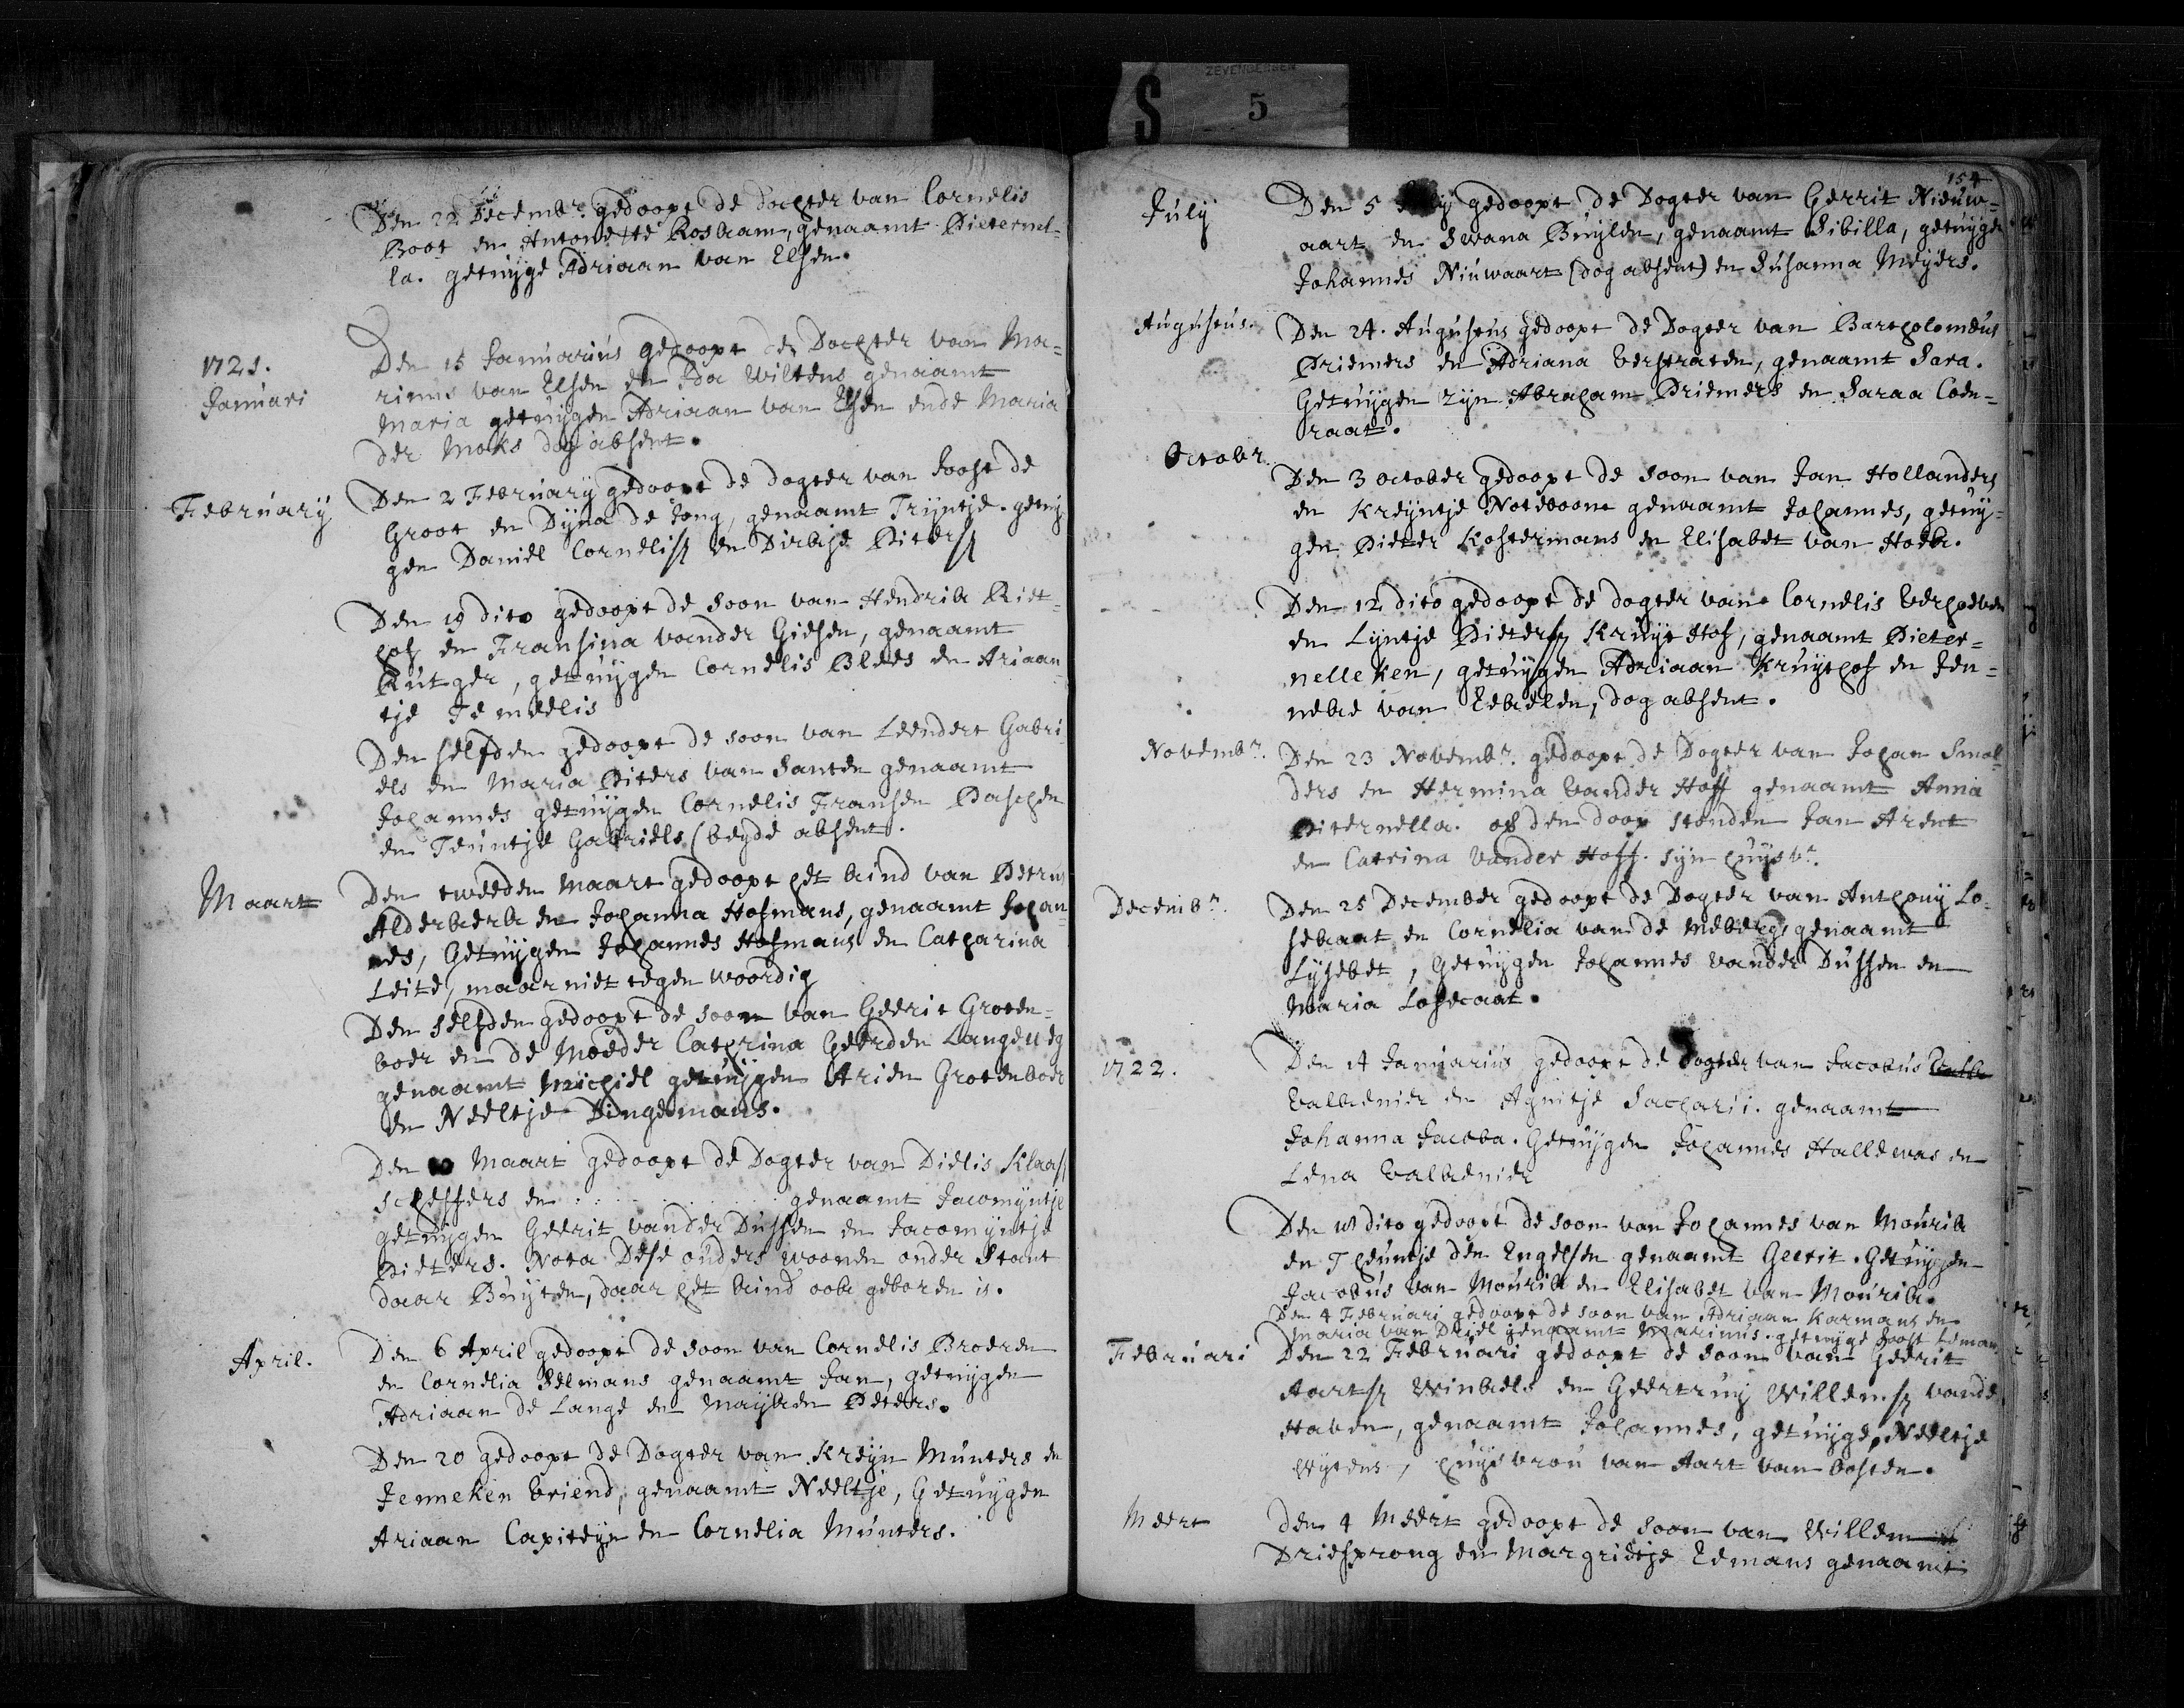 ZEVENBERGEN
S 5
Den 22 Decembr. gedoopt de dochter van Cornelis
Boot en Antonette Rosbaam, genaamt Pieternel-
la. getuyge Adriaan van Elsen.
1721.
Januari
Den 15 Januarius gedoopt de Dochter van Ma-
rinus van Elsen en Ida Wiltens genaamt
Maria getuygen Adriaan van Elsen ende Maria
der Moks dog absent.
February
Den 2 February gedoopt de dogter van Joost de
Groot en Dyna de Jong, genaamt Tryntje. getuy
gen Daniel Cornelisz en Dirkje Pitersz
Den 19 dito gedoopt de soon van Hendrik Riet-
hof en Fransina vander Giesen, genaamt
Rutger, getuygen Cornelis Blees en Ariaan-
tje Temeelis
Den selfden gedoopt de soon van Leendert Gabri-
els en Maria Piters van Santen genaamt
Johannes getuygen Cornelis Fransen Baschen
en Teuntje Gabriels (beyde absent.
Maart
Den tweeden Maart gedoopt het kind van Petrus
Alderkerk en Johanna Hofmans, genaamt Johan
nes, Getuygen Johannes Hofmans en Catharina
Leite, maar niet tegenwoordig
Den selfden gedoopt de soon van Geerit Groten-
boer en de Moeder Cathrina Geerden Langeweg
genaamt Michiel getuygen Arien Grotenboer
en Neeltje Dingemans.
Den 10 Maart gedoopt de Dogter van Dielis Klaasz
Scheffers en . . . . . . . genaamt Jacomyntje
getuygen Geerit vander Dussen en Jacomyntje
Pieters. Nota Dese ouders woonen onder Stant
daar Buyten, daar het kind ook geboren is.
April.
Den 6 April gedoopt de soon van Cornelis Broeren
en Cornelia Selmans genaamt Jan, getuygen
Adriaan de Lange en Mayken Peters.
Den 20 gedoopt de Dogter van Kryn Munters en
Jenneken Vriend, genaamt Neeltje, Getuygen
Ariaan Capiteyn en Cornelia Munters.
154
July
Den 5 July gedoopt de Dogter van Gerrit Nieuw-
aart en Swana Buylen, genaamt Sibilla, getuyge
Johannes Niuwaart (dog absent) en Susanna Meyers.
Augustus.
Den 24. Augustus gedoopt de Dogter van Bartholomeus
Driemers en Adriana Verstraten, genaamt Sara.
Getuygen zyn Abraham Driemers en Saraa Coen-
raat.
Octobr.
Den 3 october gedoopt de soon van Jan Hollanders
en Kreyntje Noteboome genaamt Johannes, getuy-
gen Pieter Kostermans en Elisabet van Hoek.
Den 12 dito gedoopt de dogter van Cornelis Verhoeven
en Lyntje Pietersz Kruyt Hof, genaamt Pieter-
nelleken, getuygen Adriaan Kruythof en Jen-
neke van Eekelen, dog absent.
Novembr.
Den 23 Novembr. gedoopt de Dogter van Johan Smol-
ders en Hermina vander Hoff genaamt Anna
Piternella. op den doop stonden Jan Arent
en Catrina vander Hoff. syn huysvr.
Decembr.
Den 25 December gedoopt de Dogter van Anthony Lo-
sekaat en Cornelia van de Mebergs genaamt
Lysebet, Getuygen Johannes vander Dussen en
Maria Losecaat.
1722.
Den 14 Januarius gedoopt de dogter van Jacobus
Valkenier en Agnitje Sacharii. genaamt
Johanna Jacoba. Getuygen Johannes Hallewas en
Lena Valkenier
Den 18 dito gedoopt de soon van Johannes van Mourik
en Theuntje den Engelsen genaamt Geerit. Getuygen
Jacobus van Mourik en Elisabet van Mourik.
Den 4 Februari gedoopt de soon van Adriaan Karmans en
Maria van Driel genaamt Marinus. getuyge Joost Leman.
Februari
Den 22 Februari gedoopt de soon van Geerit
Aartsz Winkels en Geertruy Willemsz vande
Haven, genaamt Johannes, getuyge, Neeltje
Wytens, huysvrou van Aart van Costen.
Meert
Den 4 Meert gedoopt de soon van Willem
Driesprong en Margrietje Eemans genaamt